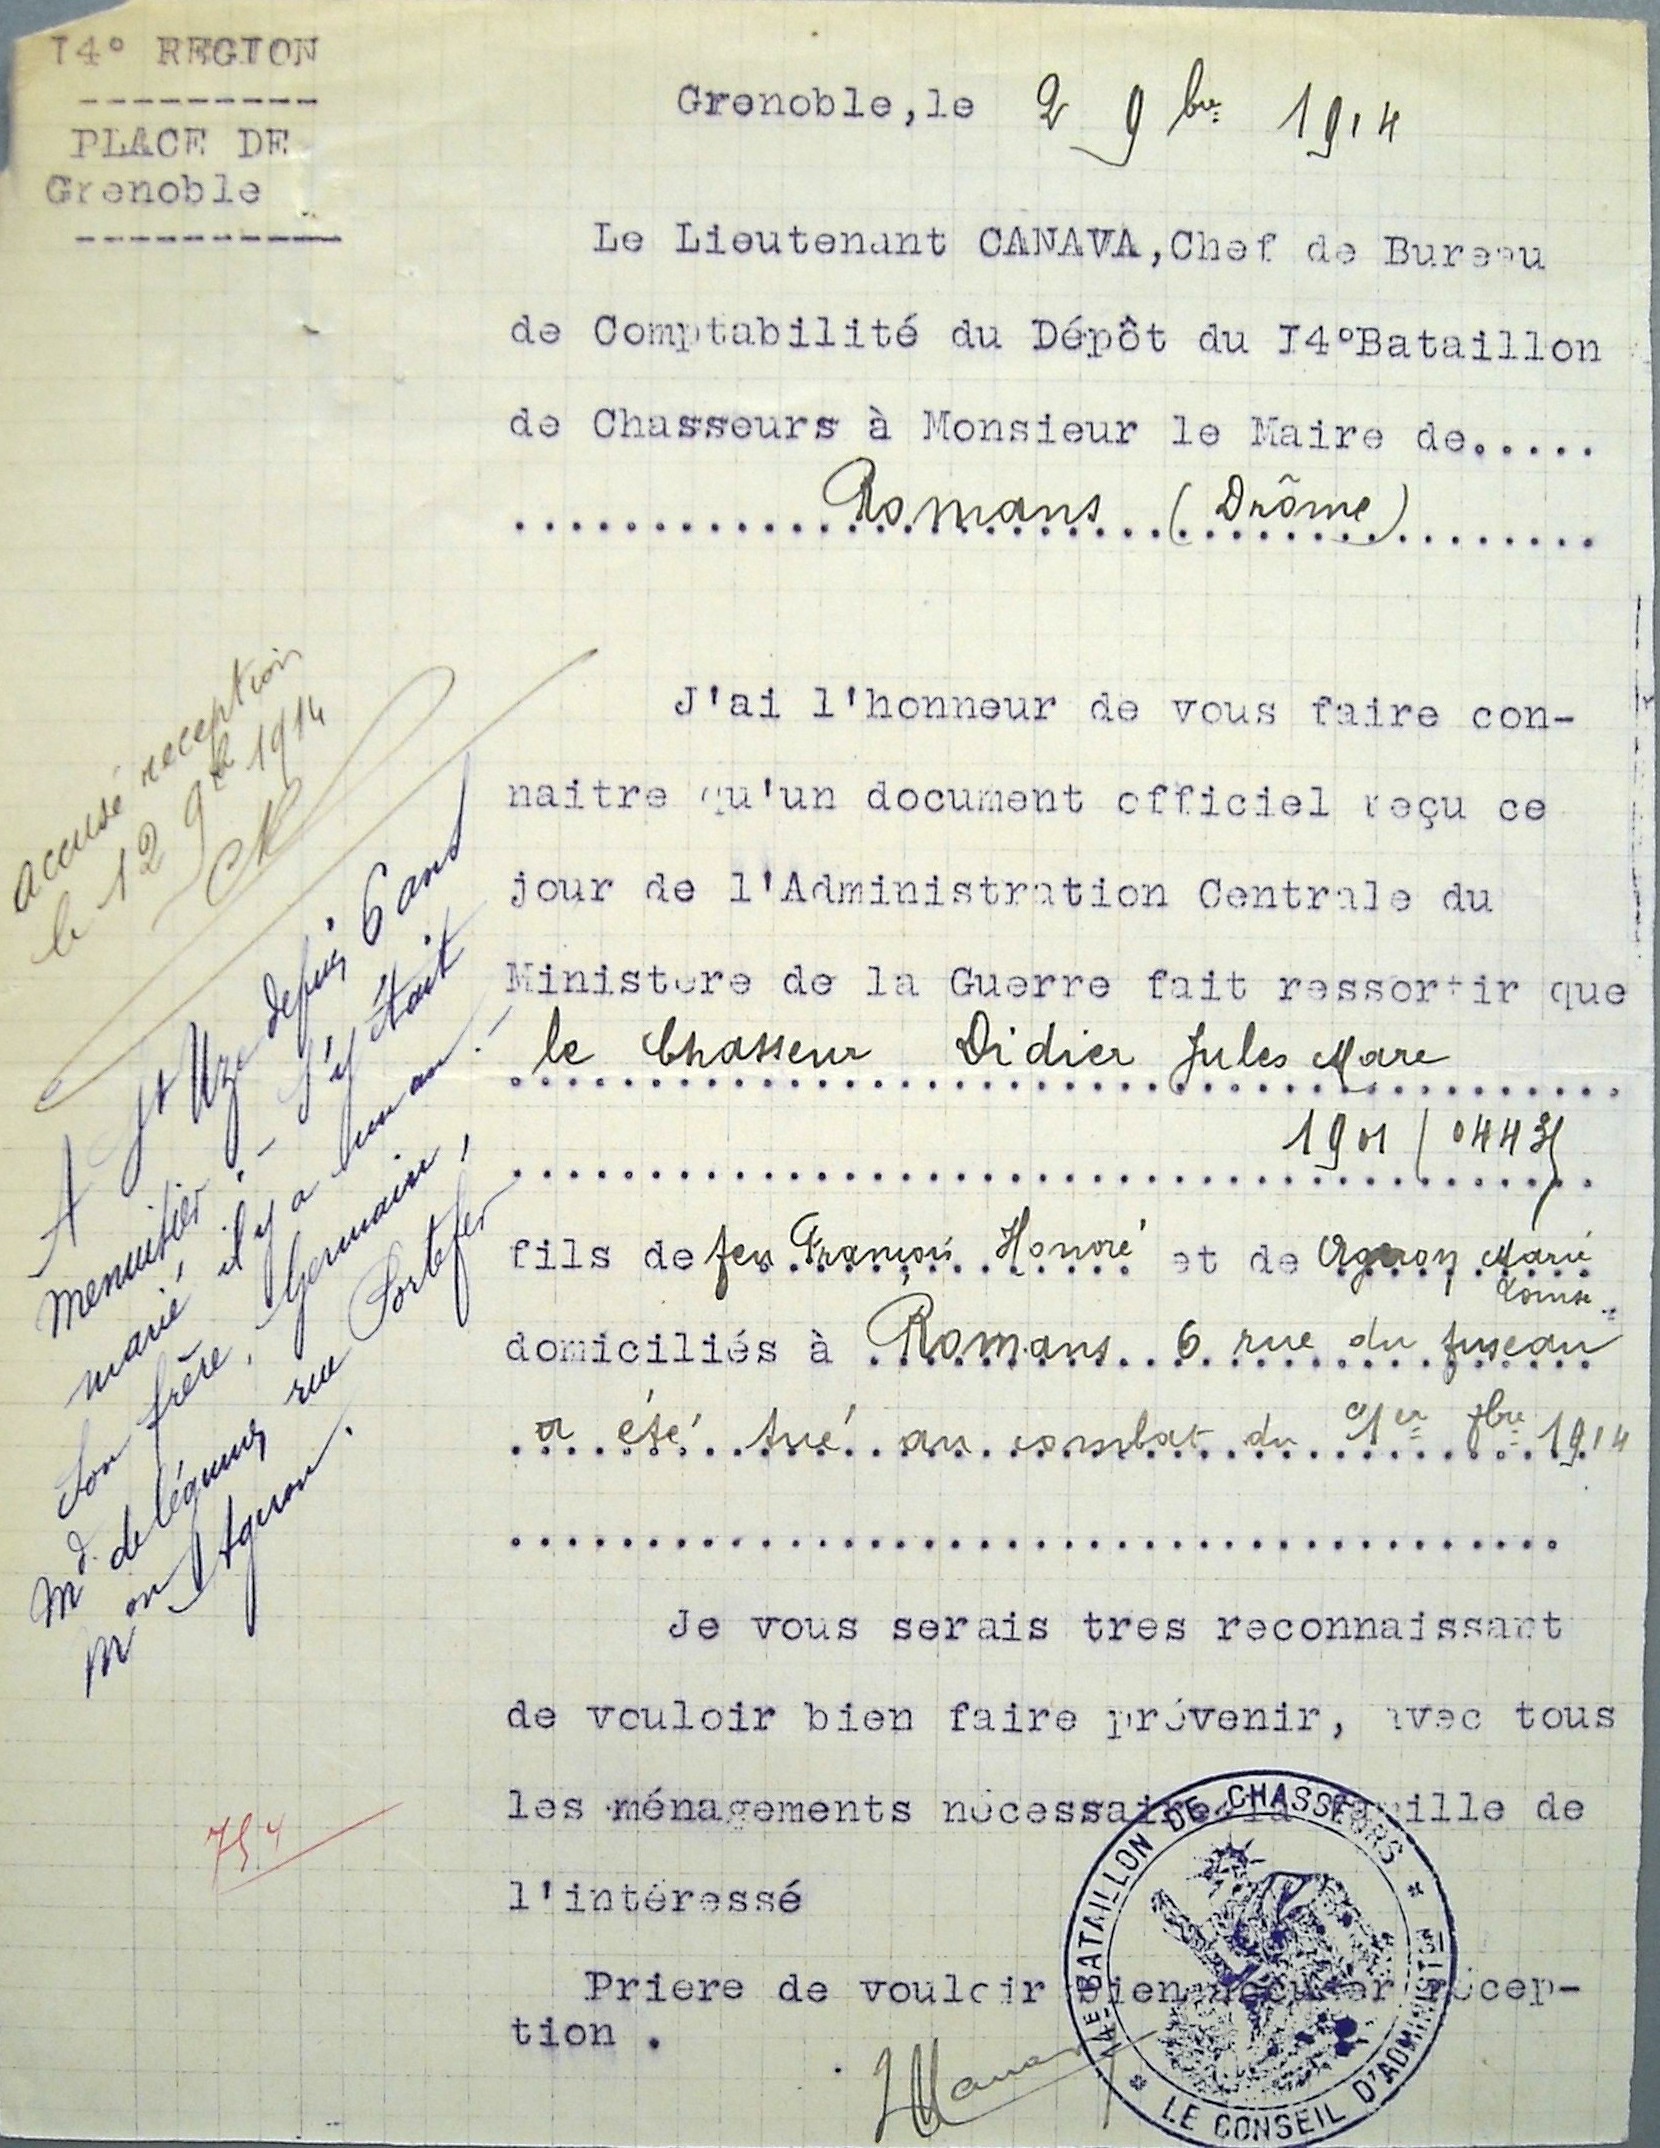 I4° REGION
PLACE DE
Grenoble
Grenoble,le 2 9bre 1914
Le Lieutenant CANAVA,Chef de Bureau
de Comptabilité du Dépôt du I4°Bataillon
de Chasseurs à Monsieur le Maire de.....
Romans (Drôme)
accusé reception
le 12 9bre 1914
J'ai l'honneur de vous faire con-
naitre qu'un document officiel reçu ce
jour de l'Administration Centrale du
Ministere de la Guerre fait ressortir que
le Chasseur Didier Jules Marc
1901
fils de feu François Honoré et de Ageron Marie
Louise
domiciliés à Romans 6 rue du fuseau
a été tué au combat du 1er 7bre 1914
A St Uze depuis 6 ans
menuisier. - S'y était
marié il y a un an. -
Son frère, Germain,
Md de légumes rue Portefer
mon Ageron.
Je vous serais tres reconnaissant
de vouloir bien faire prévenir, avec tous
les ménagements nécessaires la famille de
l'intéressé
Priere de vouloir bien accuser récep-
tion .
14E BATAILLON DE CHASSEURS
LE CONSEIL D'ADMINISTON